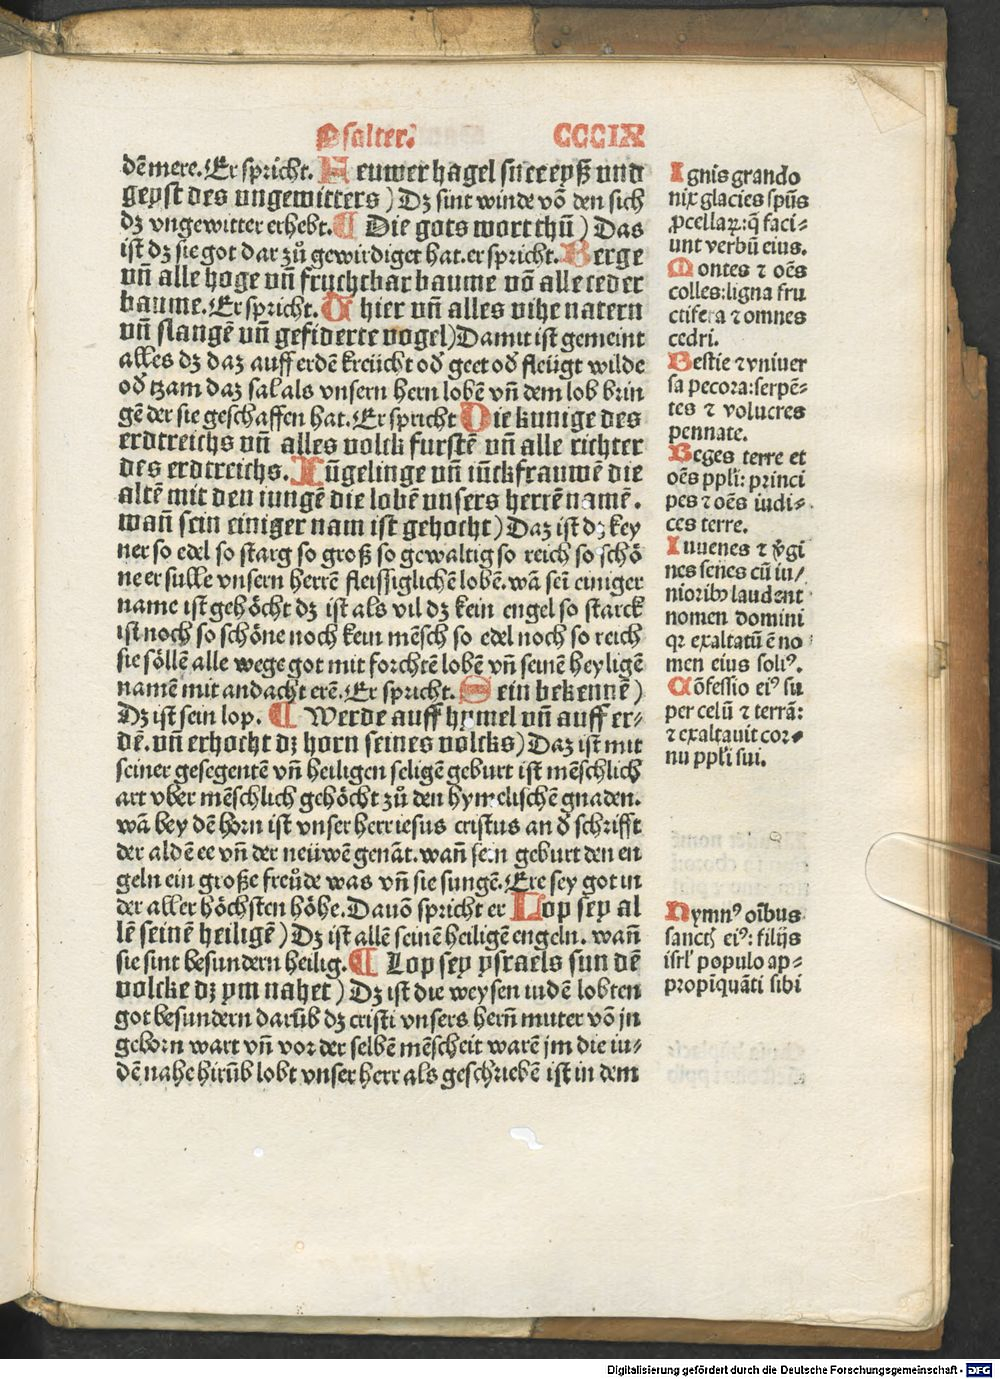 Psalter. CCCIX
dē mere. Er spricht. Feuwer hagel snee eyß und
geyst des ungewitters) Dʒ sint winde vō den sich
dʒ vngewitter erhebt. ¶ Die gots wort thū) Das
ist dʒ sie got dar zů gewirdiget hat. er spricht. Berge
vñ alle hoge vñ fruchtbar baume vō alle ceder
baume. Er spricht. Thier vñ alles vihe natern
vñ slangē vñ gefiderte vogel) Damit ist gemeint
alles dʒ daz auff erdē kreücht oď geet oď fleügt wilde
oď tzam daz sal als vnsern hern lobē vñ dem lob brin
gē der sie geschaffen hat. Er spricht Die kunige des
erdtreichs vñ alles volck furstē vñ alle richter
des erdtreichs. Jūgelinge vñ iūckfrauwē die
altē mit den iungē die lobē unsers herrē namē.
wañ sein einiger nam ist gehocht) Daz ist dʒ key
ner so edel so starg so groß so gewaltig so reich so schō
ne er sulle vnsern herrē fleissiglichē lobē. wā sein einiger
name ist gehöcht dʒ ist als vil dʒ kein engel so starck
ist noch so schöne noch kein mēsch so edel noch so reich
sie söllē alle wege got mit forchtē lobē vñ seinē heyligē
namē mit andacht erē. Er spricht. Sein bekennē)
Dʒ ist sein lop. ¶ Werde auff hymel vñ auff er-
dē. vñ erhocht dʒ horn seines volcks) Daz ist mit
seiner gesegentē vñ heiligen seligē geburt ist mēschlich
art vber mēschlich gehöcht zů den hymelischē gnaden.
wā bey dē horn ist vnser herr iesus cristus an ď schrifft
der aldē ee vñ der neüwē genāt. wañ sein geburt den en
geln ein große freůde was vñ sie sungē. Ere sey got in
der aller höchsten höhe. Dauō spricht er Lop sey al
lē seinē heiligē) Dʒ ist allē seinē heiligē engeln. wañ
sie sint besundern heilig. ¶ Lop sey ysraels sun dē
volcke dʒ ym nahet) Dʒ ist die weysen iudē lobten
got besundern darūb dʒ cristi vnsers herñ muter vō jn
geborn wart vñ vor der selbē mēscheit warē jm die iu-
dē nahe hirūb lobt vnser herr als geschriebē ist in dem
Ignis grando
nix glacies spūs
ꝓcellaꝝ: q̄ faci-
unt verbū eius.
Montes ⁊ oēs
colles: ligna fru
ctifera ⁊ omnes
cedri.
Bestie ⁊ vniuer
sa pecora: serpē-
tes ⁊ volucres
pennate.
Reges terre et
oēs ppli: princi
pes ⁊ oēs iudi-
ces terre.
Iuuenes ⁊ v̓gi
nes senes cū iu/
nioribꝰ laudent
nomen domini
qꝛ exaltatū ē no
men eius soliꝰ.
Cōfessio eiꝰ su
per celū ⁊ terrā:
⁊ exaltauit cor-
nu ppli sui.
Hymnꝰ oībus
sanctꝭ eiꝰ: filijs
isrl' populo ap-
propīquāti sibi
Digitalisierung gefördert durch die Deutsche Forschungsgemeinschaft - DFG